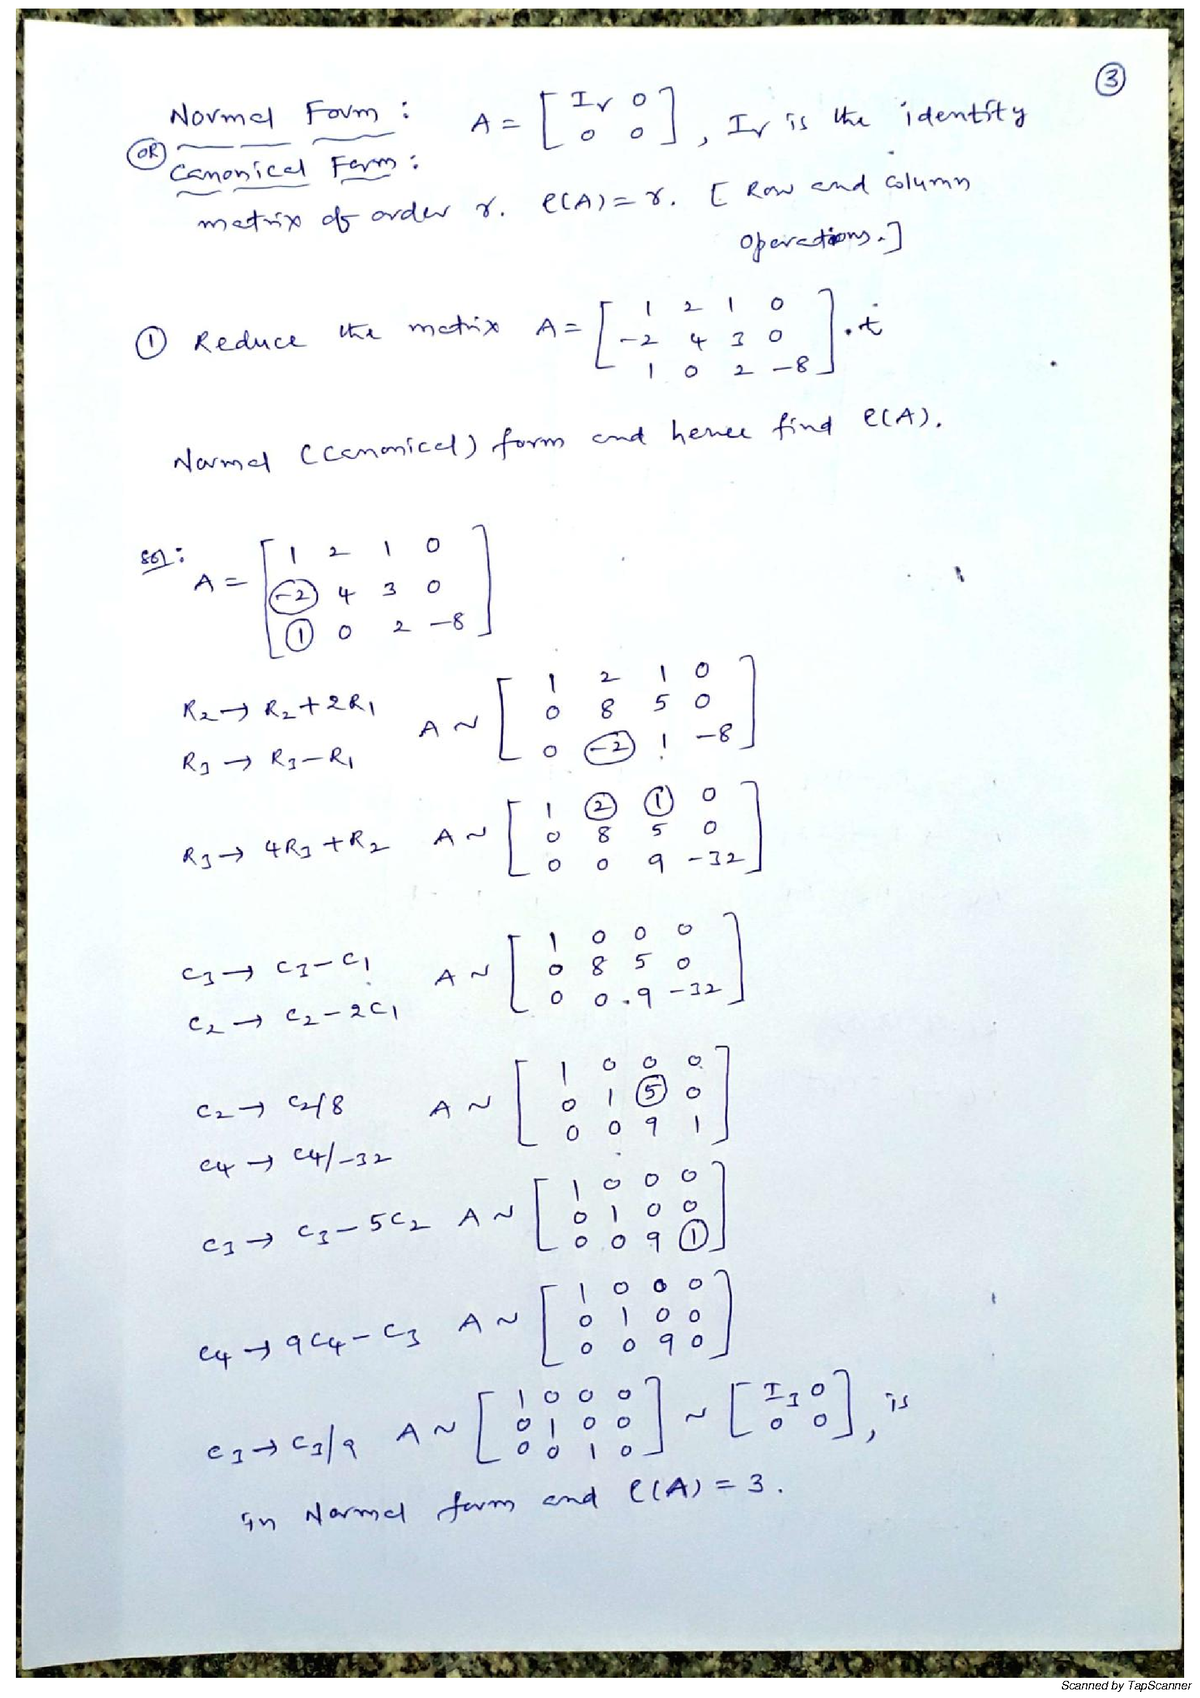 3
Normal Form : A = [ Ir 0
0 0 ] , Ir is the identity
OR
Canonical Form :
matrix of order r. ρ(A) = r. [ Row and column
operations.]
① Reduce the matrix A = [ 1 2 1 0
-2 4 3 0
1 0 2 -8 ] . t
Normal (canonical) form and hence find ρ(A).
Sol :
A = [ 1 2 1 0
-2 4 3 0
1 0 2 -8 ]
R2 → R2 + 2R1
R3 → R3 - R1
A ~ [ 1 2 1 0
0 8 5 0
0 -2 1 -8 ]
R3 → 4R3 + R2 A ~ [ 1 2 1 0
0 8 5 0
0 0 9 -32 ]
C3 → C3 - C1
C2 → C2 - 2C1
A ~ [ 1 0 0 0
0 8 5 0
0 0 9 -32 ]
C2 → C2/8
C4 → C4/-32
A ~ [ 1 0 0 0
0 1 5 0
0 0 9 1 ]
C3 → C3 - 5C2 A ~ [ 1 0 0 0
0 1 0 0
0 0 9 1 ]
C4 → 9C4 - C3 A ~ [ 1 0 0 0
0 1 0 0
0 0 9 0 ]
C3 → C3/9 A ~ [ 1 0 0 0
0 1 0 0
0 0 1 0 ] ~ [ I3 0
0 0 ] , is
in Normal form and ρ(A) = 3.
Scanned by TapScanner